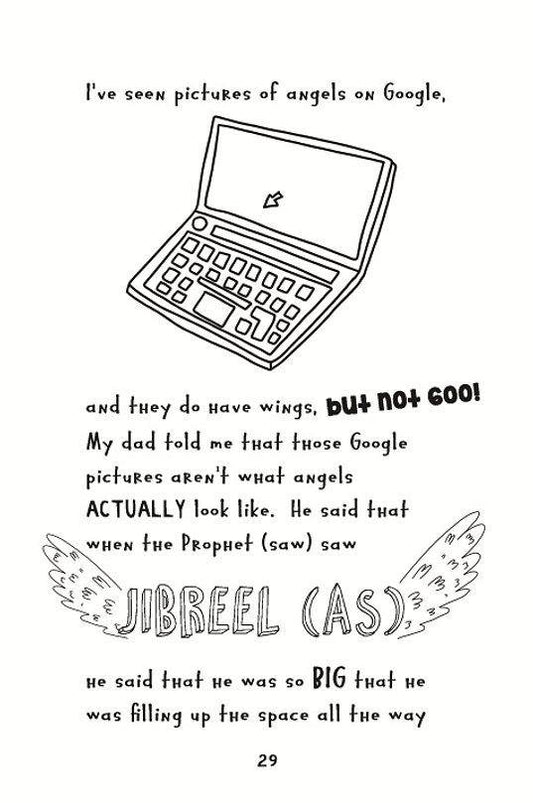 I've seen pictures of angels on Google,
and they do have wings, but not 600!
My dad told me that those Google
pictures aren't what angels
ACTUALLY look like. He said that
when the Prophet (saw) saw
JIBREEL (AS),
He said that He was so BIG that He
was filling up the space all the way
29